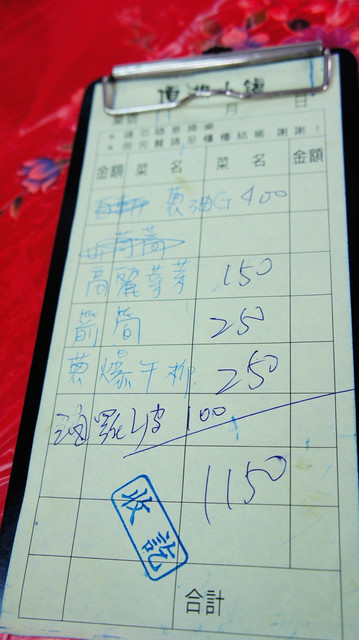 月 日
＊請勿隨意燒烤
＊用完餐請至櫃檯結帳.謝謝！
金額 菜名 菜名 金額
蔥油G 400
高麗菜芽 150
箭筍 250
蔥爆牛柳 250
100
1150
收訖
合計